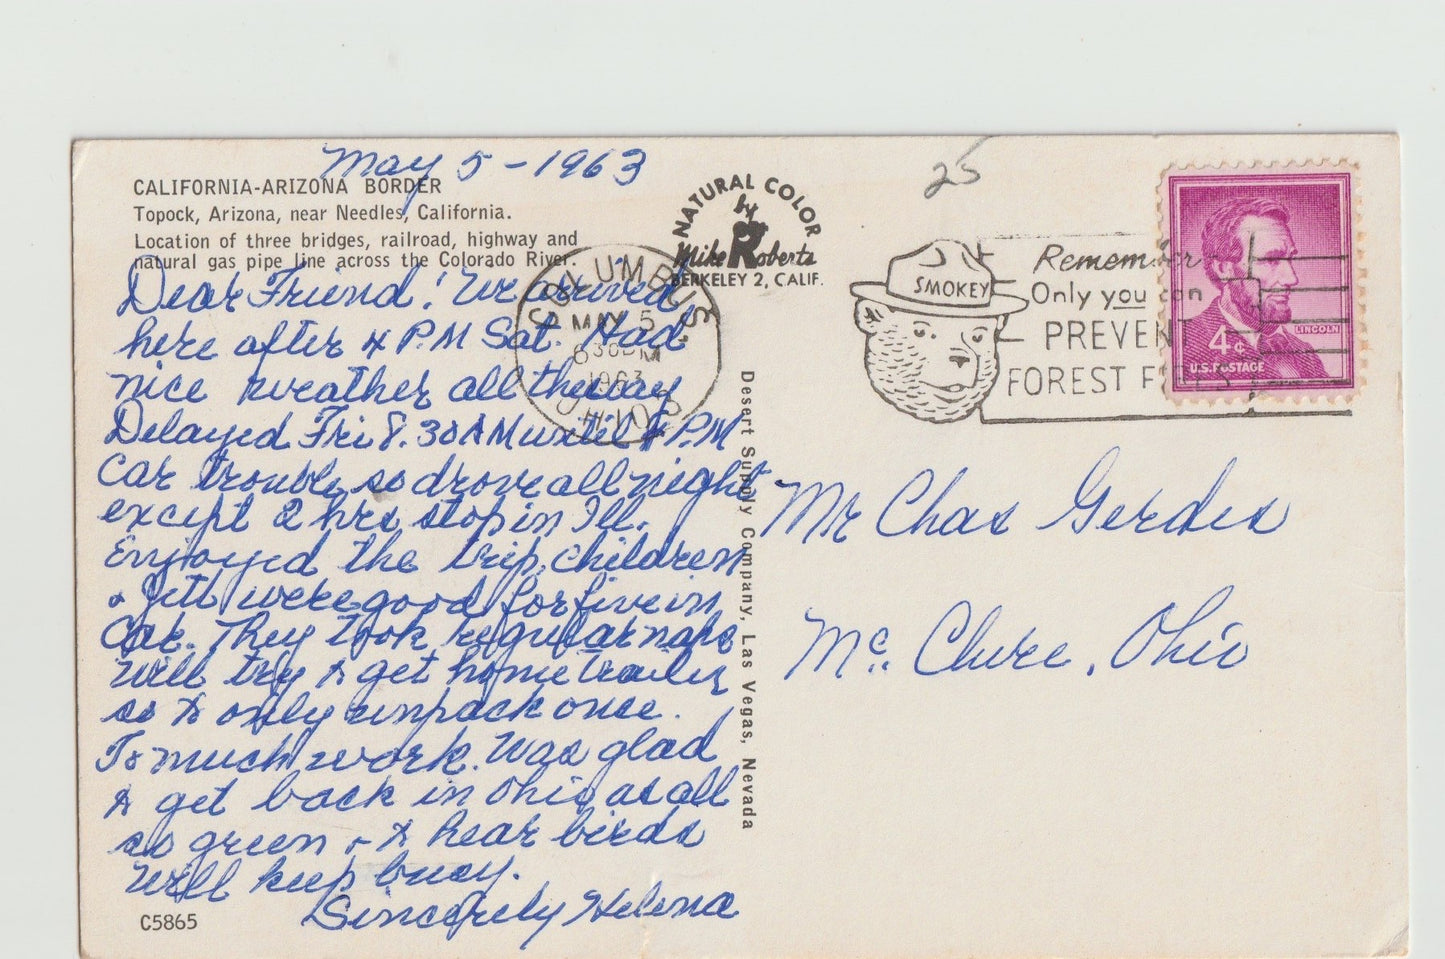 May 5 - 1963
CALIFORNIA-ARIZONA BORDER
Topock, Arizona, near Needles, California.
Location of three bridges, railroad, highway and
natural gas pipe line across the Colorado River.
Dear Friend! We arrived
here after 4 P.M Sat. Had
nice weather all the way
Delayed Fri 8.30 AM until 4 P.M
Car trouble so drove all night
except 2 hrs stop in Ill.
Enjoyed the trip, children
& Jill were good for five in
Car. They took regular naps
Will try to get home trailer
so to only unpack once.
To much work. Was glad
to get back in Ohio as all
so green & to hear birds
Will keep busy.
Sincerely Helena
C5865
NATURAL COLOR
by
Mike Roberts
BERKELEY 2, CALIF.
Desert Supply Company, Las Vegas, Nevada
COLUMBUS
MAY 5
6 30 PM
1963
OHIO
25
SMOKEY
Remember
Only you can
PREVENT
FOREST FIRES
LINCOLN
4¢
U.S. POSTAGE
Mr Chas Gerdes
Mc. Clure, Ohio